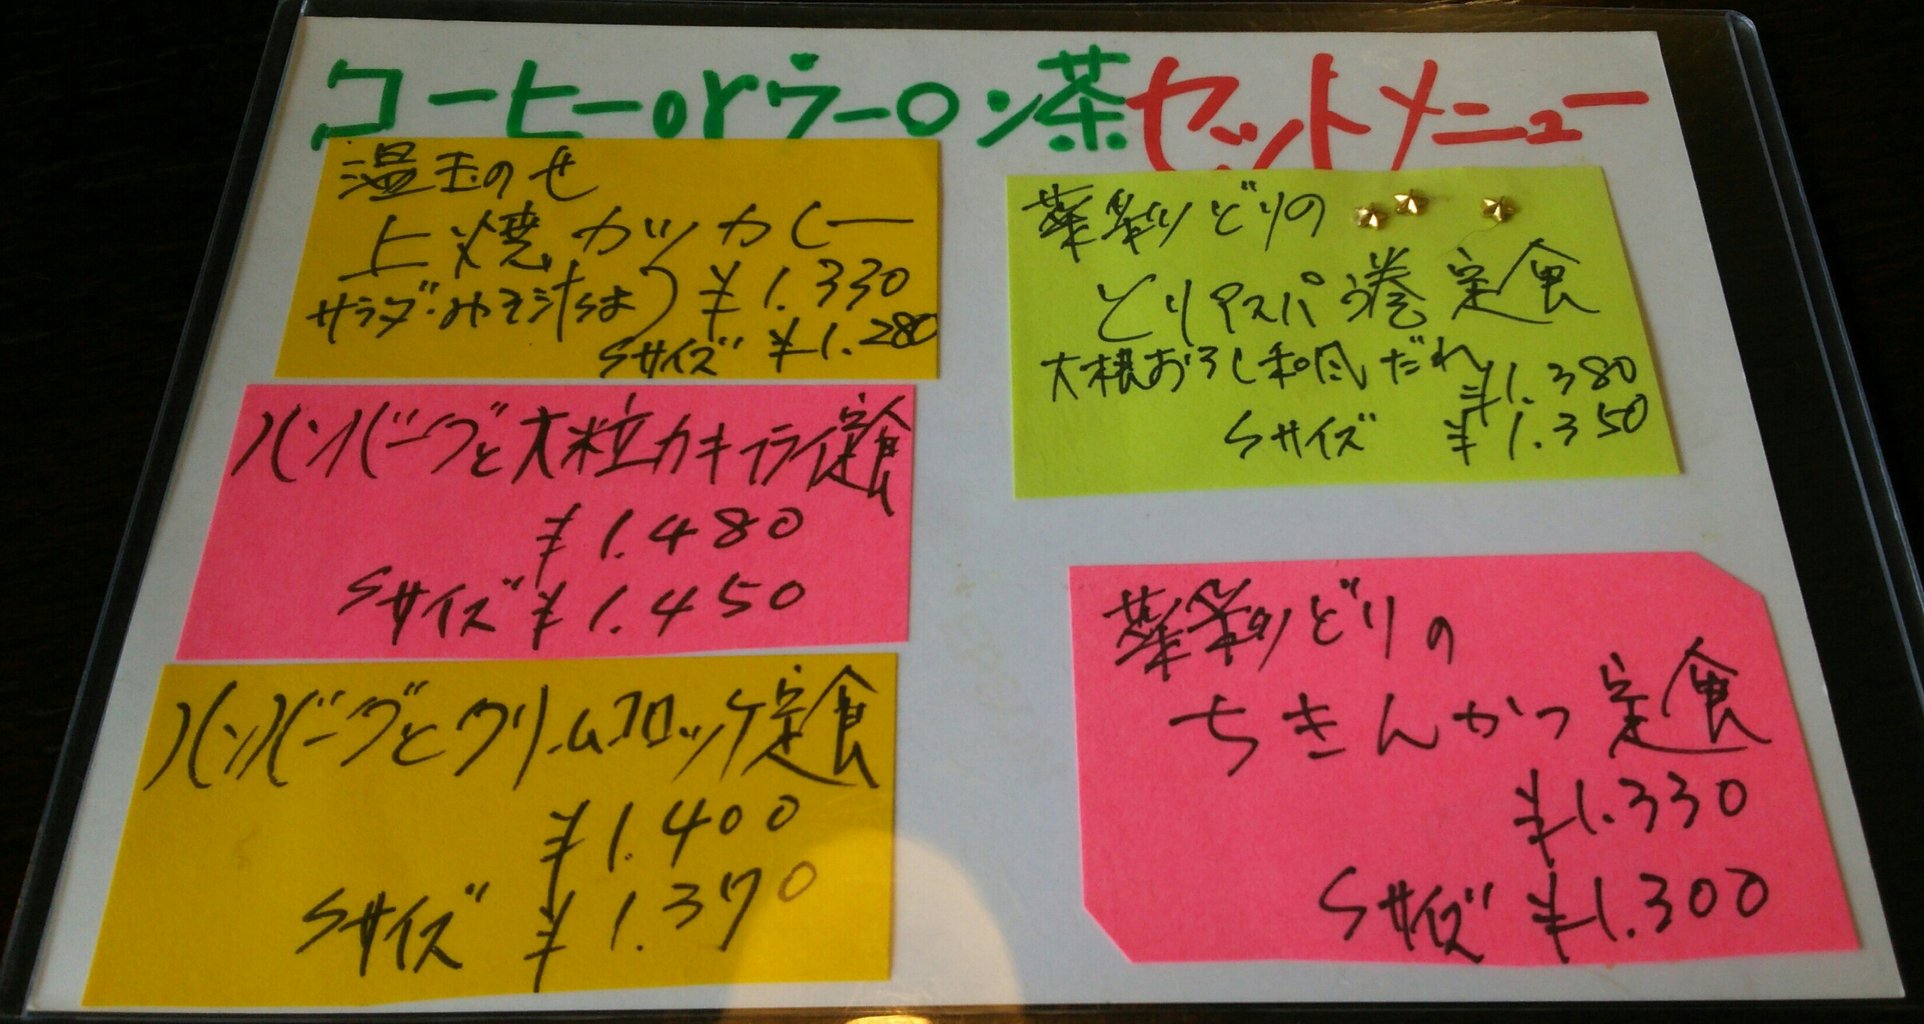 コーヒーorウーロン茶セットメニュー
温玉のせ
上焼カツカレー
サラダ・みそ汁 ¥1.330
Sサイズ ¥1.280
ハンバーグと大粒カキフライ定食
¥1.480
Sサイズ ¥1.450
ハンバーグとクリームコロッケ定食
¥1.400
Sサイズ ¥1.370
薬彩どりの
とりアスパラ巻定食
大根おろし和風だれ ¥1.380
Sサイズ ¥1.350
薬彩どりの
ちきんかつ定食
¥1.330
Sサイズ ¥1.300